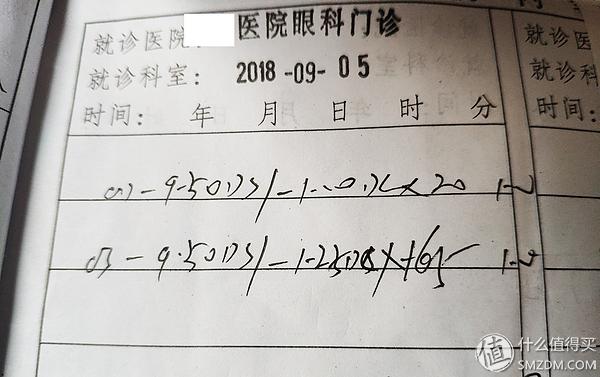 就诊医院: 医院眼科门诊 就诊医
就诊科室: 2018-09-05 就诊科
时间: 年 月 日 时 分 时间:
OD -9.50DS/-1.00DC×20 1.0
OS -9.50DS/-1.25DC×165 1.0
值 什么值得买
SMZDM.COM